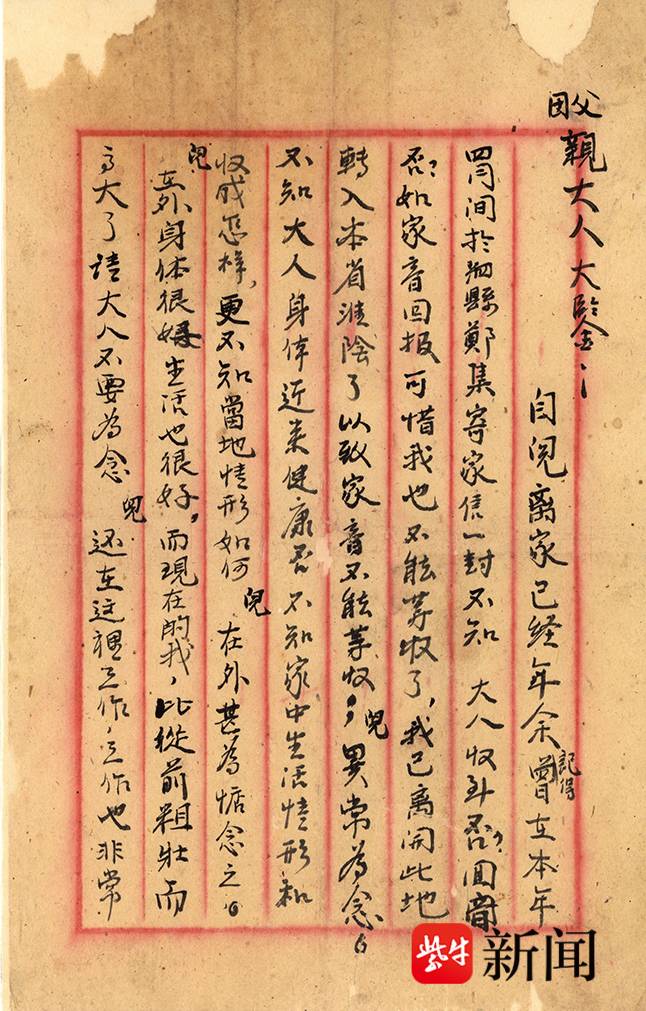 父親大人大鑒：
自児离家已经年余記得曾在本年
四月间於泗縣鄭集寄家信一封不知 大人收到否？回音
否？如家音回报可惜我也不能等收了，我已离開此地
轉入本省淮陰了以致家音不能等收，兒異常為念。
不知大人身体近来健康否不知家中生活情形和
收成怎样，更不知當地情形如何 兒在外甚為惦念之。
兒在外身体很好生活也很好，而現在的我，比從前粗壮而
高大了请大人不要為念 兒还在这裡工作，工作也非常
紫牛新闻